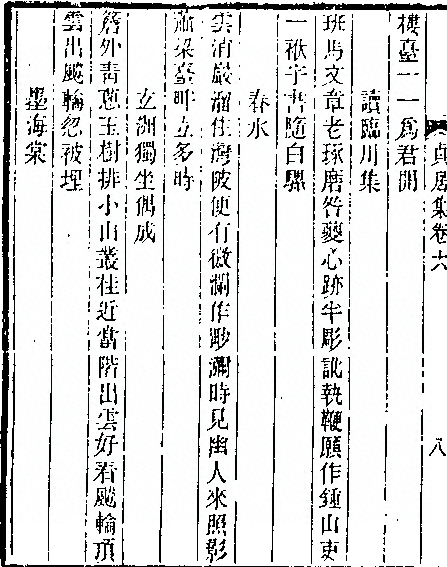 貞居集卷六 八
樓臺一一爲君開
讀臨川集
班馬文章老琢磨咎夔心跡半彫訛執鞭願作鍾山吏
一袱字書隨白騾
春水
雲消巖溜住海陂便有微瀾作聮瀾時見幽人來照影
蕭梁臺畔立多時
玄洲獨坐偶成
詹外靑蔥玉樹排小山叢桂近當階出雲好看飚輪頂
雲出飚輪忽被埋
墨海棠